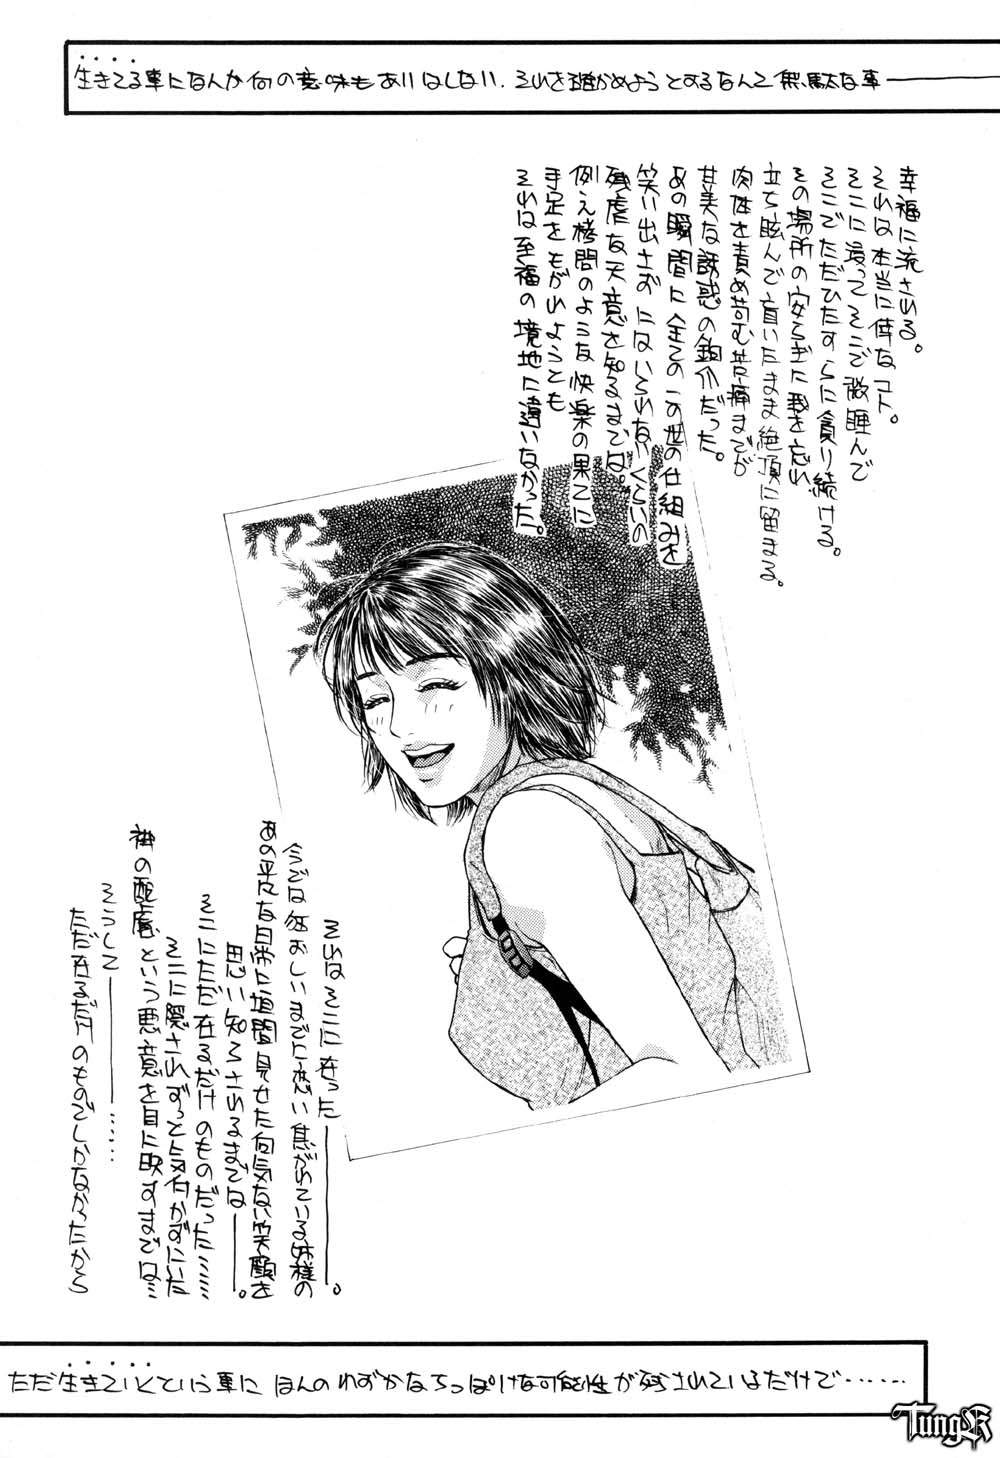 生きてる事になんか何の意味もありはしない．それを確かめようとするなんて無駄な事―――
幸福に流される。
それは本当に倖なコト。
そこに浸ってそこで微睡んで
そこでただひたすらに貪り続ける。
その場所の安らぎに我を忘れ
立ち眩んで盲いたまま絶頂に留まる。
肉体を責め苛む苦痛までが
甘美な誘惑の鉤爪だった。
あの瞬間に全てのこの世の仕組みを
笑い出さずにないられないくらいの
残虐な天意を知るまでは。
例え拷問のような快楽の果てに
手足をもがれようとも
それは至福の境地に違いなかった。
それはそこに在った―――――。
今では狂おしいまでに恋い焦がれている姉様の
あの平凡な日常に垣間見せた何気ない笑顔を
思い知らされるまでは―――。
そこにただ在るだけのものだった……
そこに隠されずっと気付かずにいた
神の配慮という悪意を目に映すまでは…
そうして―――……
ただ在るだけのものでしかなかったから
ただ生きていくという事に ほんのわずかなちっぽけな可能性が残されているだけで……
TungK